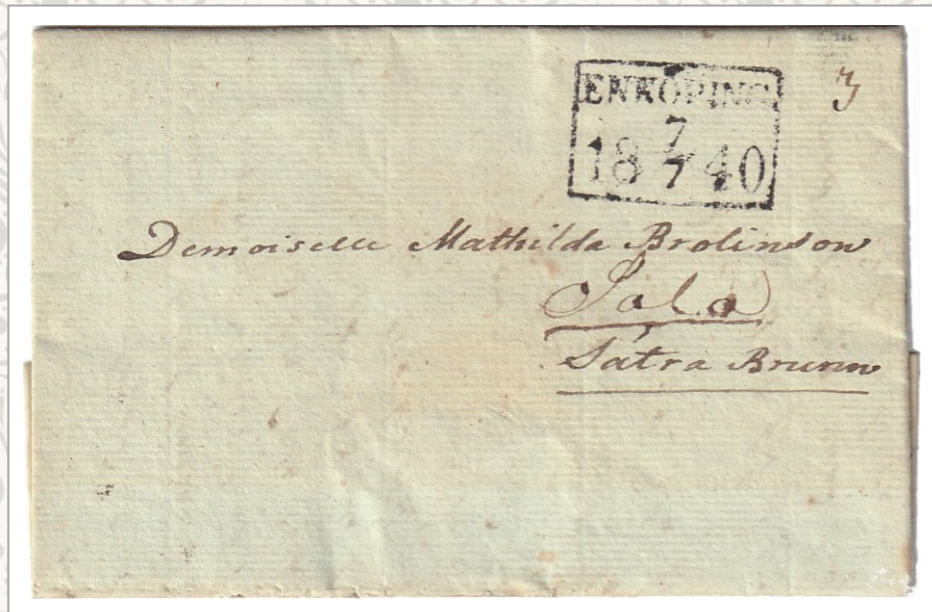 ENKÖPING
7
18 7 40
3
Demoiselle Mathilda Brolinson
Sala
Sätra Brunn